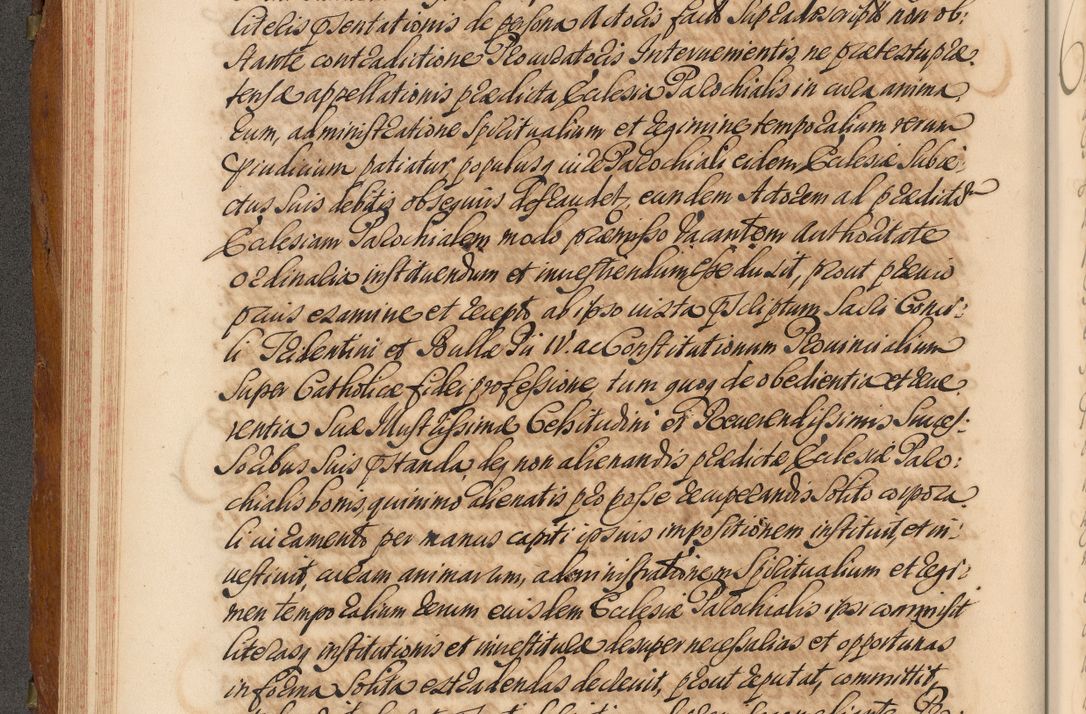 literis Psentationis de persona Actoris facto Supradescripto non ob:
stante contradictione Procuratoris Intervenientis, ne praetextu prae:
tensae appellationis praedicta Ecclesia Parochialis in cura anima:
rum, administratione Spiritualium et regimine temporalium rerum
Pjudicium patiatur, populusq iure Parochiali eidem Ecclesiae Subie:
ctus Suis debitis obsequiis defraudet, eundem Actorem ad praedictam
Ecclesiam Parochialem modo praemisso vacantem Authoritate
ordinaria instituendum et investiendum esse duxit, prout praevio
prius examine et recepto ab ipso iuxta Pscriptum Sacri Conci:
li Tridentini et Bullae Pii IV. ac Constitutionum Provincialium
Super Catholicae fidei professione tum quoq de obedientia et reve:
rentia Suae Illustrissimae Celsitudini et Reverendissimis Succes:
Soribus Suis Pstanda, deq non alienandis praedictae Ecclesiae Paro:
chialis bonis, quinimmo alienatis pro posse recuperandis Solito corpora:
li iuramento per manus capiti ipsius impositionem instituit, et in:
vestivit, curam animarum, administrationem Spiritualium et regi:
men temporalium rerum eiusdem Ecclesiae Parochialis ipsi commisit
literasq institutionis et investiturae desuper necessarias et opportunas
in forma Solita extradendas decrevit, prout reputat, committit,